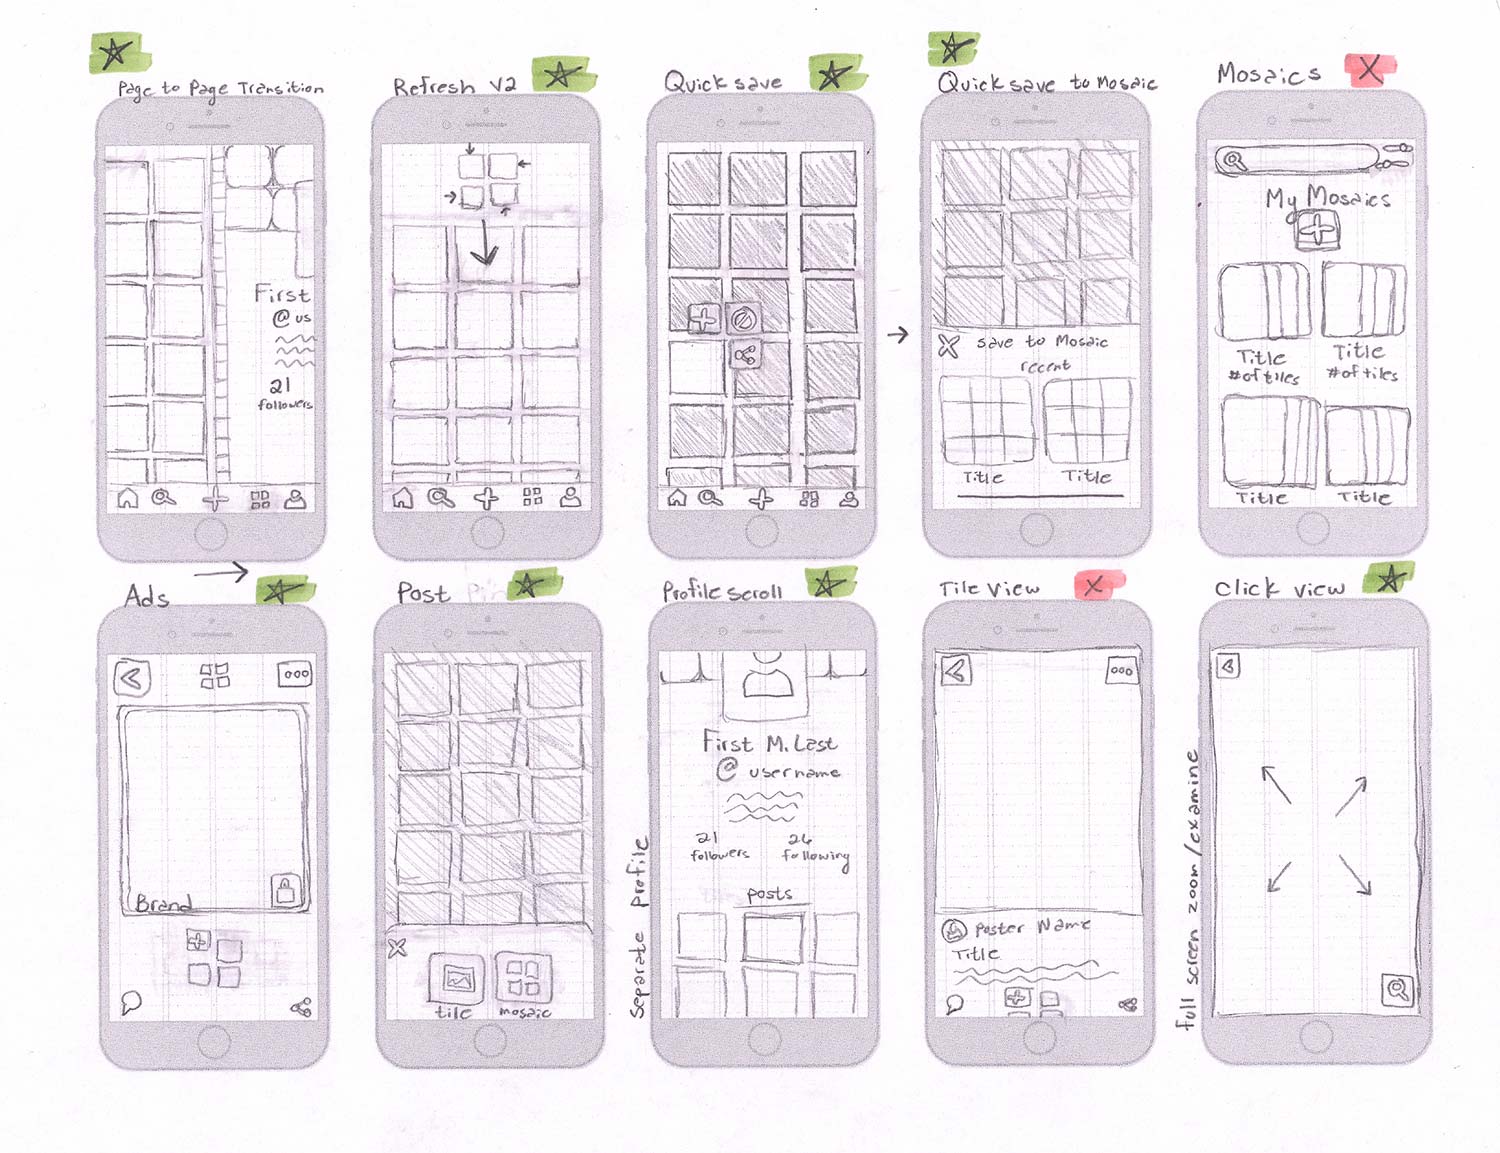 Page to Page Transition
First
@us
21
followers
Refresh V2
Quick save
Quick save to Mosaic
save to Mosaic
recent
Title
Title
Mosaics
X
My Mosaics
Title
# of tiles
Title
# of tiles
Title
Title
Ads
Brand
Post
tile
mosaic
Profile scroll
separate profile
First M. Last
@ username
21
followers
26
following
posts
Tile View
X
Poster Name
Title
Click view
full screen zoom/examine